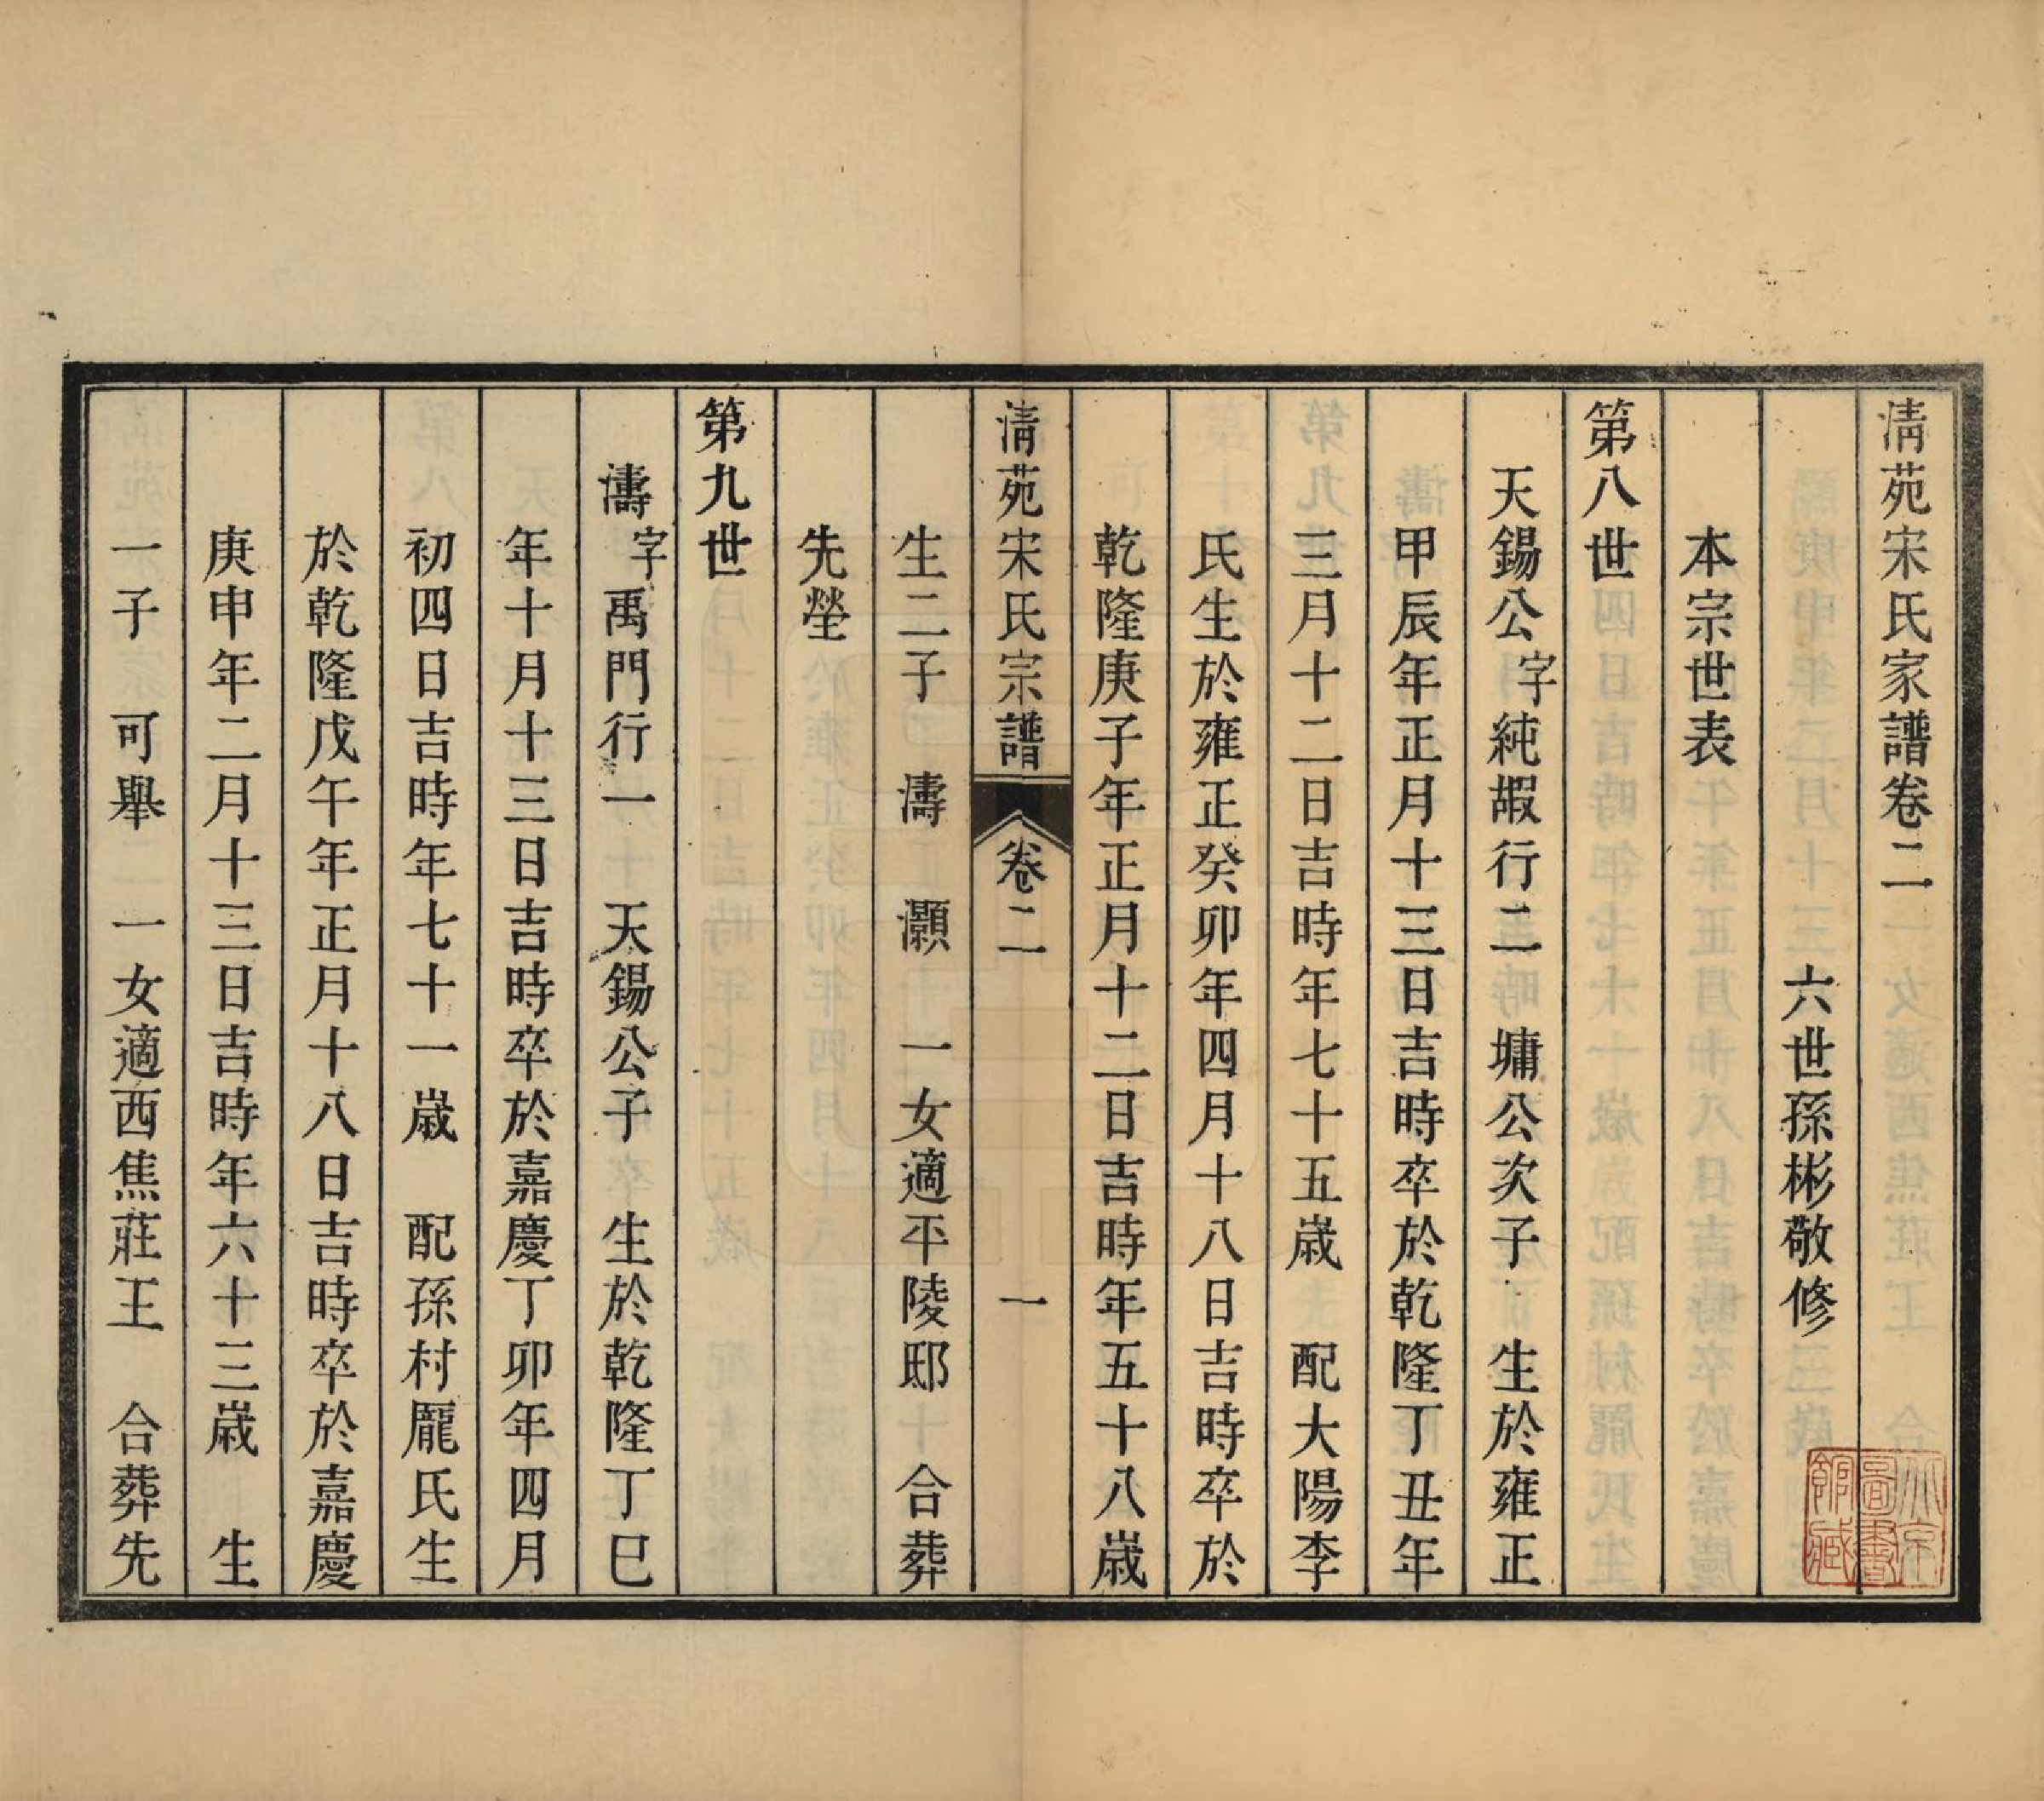 淸苑宋氏家譜卷二
六世孫彬敬修
本宗世表
第八世
天錫公字純嘏行二　墉公次子　生於雍正
甲辰年正月十三日吉時卒於乾隆丁丑年
三月十二日吉時年七十五歲　配大陽李
氏生於雍正癸卯年四月十八日吉時卒於
乾隆庚子年正月十二日吉時年五十八歲
淸苑宋氏宗譜　卷二　一
生二子　濤　灝　一女適平陵邸　合葬
先塋
第九世
濤字禹門行一　天錫公子　生於乾隆丁巳
年十月十三日吉時卒於嘉慶丁卯年四月
初四日吉時年七十一歲　配孫村龐氏生
於乾隆戊午年正月十八日吉時卒於嘉慶
庚申年二月十三日吉時年六十三歲　生
一子　可舉　一女適西焦莊王　合葬先
北京圖書館藏